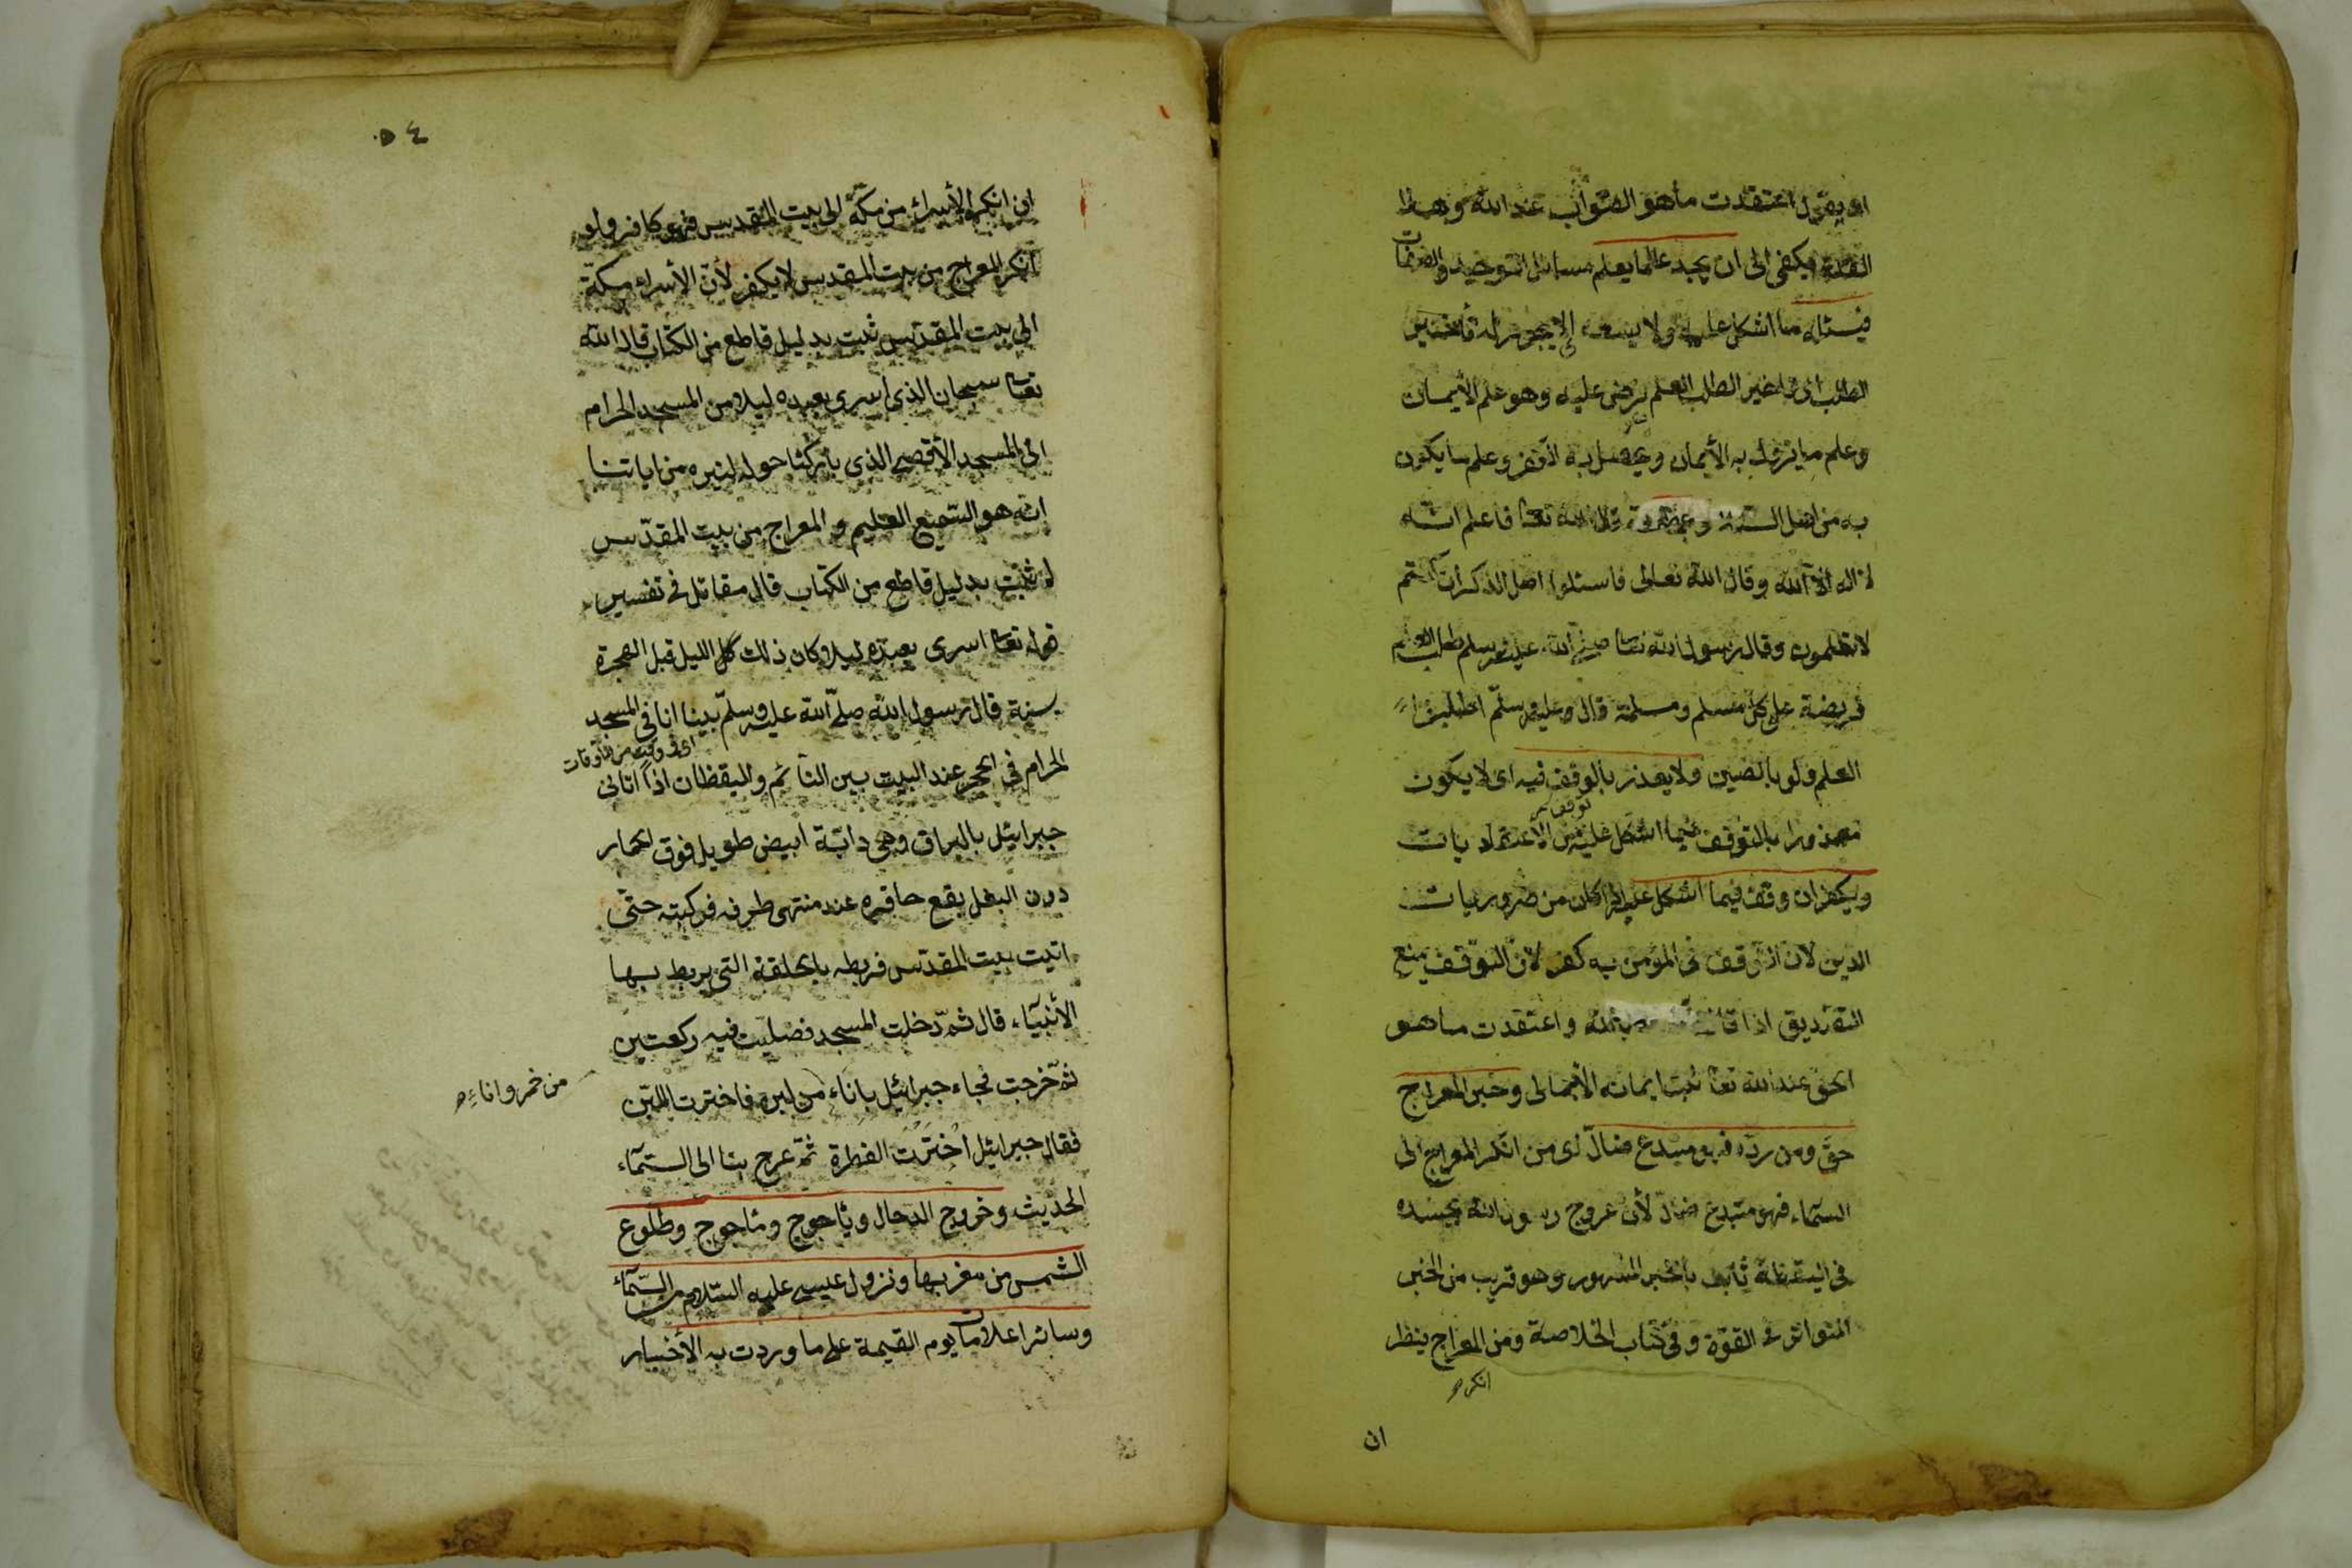 او يقول اعتقدت ما هو الصواب عند الله وهذا
القدر يكفى الى ان يجد عالما يعلم مسائل التوحيد والصفات
فيسئله ما اشكل عليه ولا يسعه اى لا يجوز له تأخير
الطلب اى تاخير الطلب العلم فرض عليه وهو علم الأيمان
وعلم ما يزول به الأيمان ويحصل به الكفر وعلم ما يكون
به من اهل السنة قال الله تعا فاعلم انه
لا اله الا الله وقال الله تعالى فاسئلوا اهل الذكر ان كنتم
لا تعلمون وقال رسول الله تعا صلى الله عليه وسلم طلب العلم
فريضة على كل مسلم ومسلمة قال وعليه وسلم اطلبوا
العلم ولو بالصين ولا يعذر بالوقف فيه اى لا يكون
توقف
معذورا بالتوقف فيما اشكل عليه من الاعتقاديات
ويكفر ان وقف فيما اشكل عليه اذا كان من ضروريات
الدين لان التوقف فى المؤمن به كفر لأن التوقف يمنع
التصديق اذا قال الله واعتقدت ما هو
الحق عند الله تعا ثبت ايمانه الأجمالى وخبر المعراج
حق ومن رده فهو مبتدع ضال اى من انكر المعراج الى
السماء فهو مبتدع ضال لأن عروج رسول الله بجسده
فى اليقظة ثابت بالخبر المشهور وهو قريب من الخبر
المتواتر فى القوة وفى كتاب الخلاصة ومن المعراج ينظر
انكر
ان
٥٤
ان انكر الأسراء من مكة الى بيت المقدس فهو كافر ولو
انكر المعراج من بيت المقدس لا يكفر لأن الأسراء مكة
الى بيت المقدس ثبت بدليل قاطع من الكتاب قال الله
تعا سبحان الذى اسرى بعبده ليلا من المسجد الحرام
الى المسجد الأقصى الذى باركنا حوله لنريه من اياتنا
انه هو السميع العليم و المعراج من بيت المقدس
لم تثبت بدليل قاطع من الكتاب قال مقاتل فى تفسير
قوله تعا اسرى بعبده ليلا وكان ذلك كل الليل قبل الهجرة
بسنة قال رسول الله صلى الله عليه وسلم بينا انا فى المسجد
اى فى وقت من الأوقات
الحرام فى الحجر عند البيت بين النائم واليقظان اذا اتانى
جبرائيل بالبراق وهى دابة ابيض طويل فوق الحمار
دون البغل يقع حافره عند منتهى طرفه فركبته حتى
اتيت بيت المقدس فربطه بالحلقة التى يربط بها
الأنبياء قال ثم دخلت المسجد فصليت فيه ركعتين
ثم خرجت فجاء جبرائيل باناء من لبن فاخترت اللبن
من خمر واناء
فقال جبرائيل اخترت الفطرة ثم عرج بنا الى السماء
الحديث وخروج الدجال ويأجوج ومأجوج وطلوع
الشمس من مغربها ونزول عيسى عليه السلام من السماء
وسائر اعلامات يوم القيمة على ما وردت به الأخبار